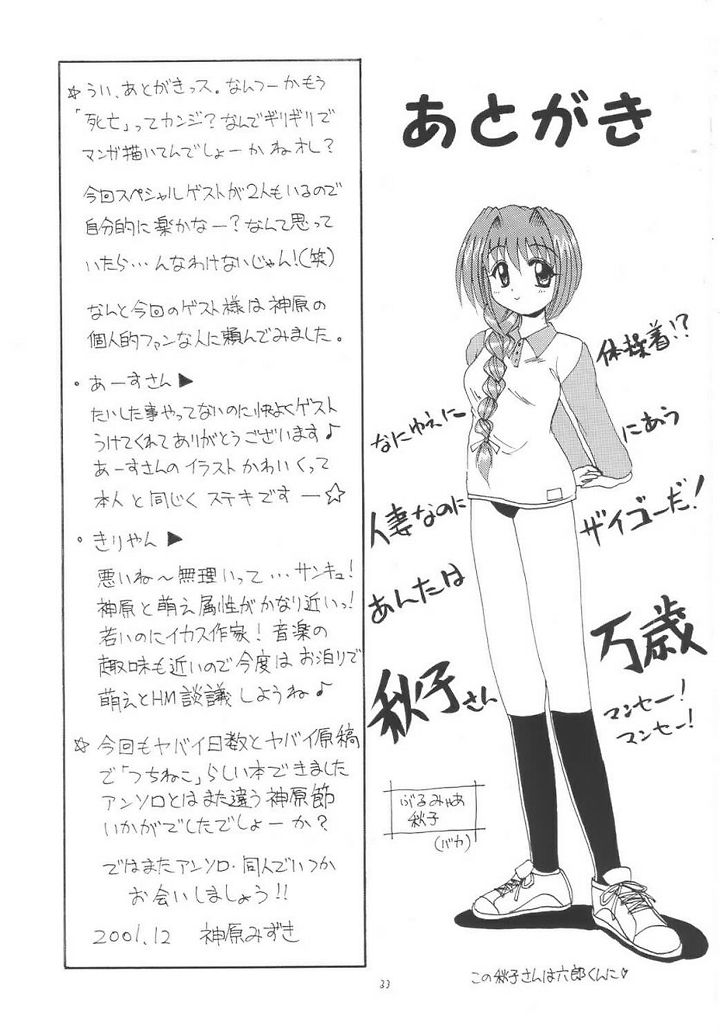 あとがき
☆うい、あとがきっス。なんつーかもう
「死亡」ってカンジ？なんでギリギリで
マンガ描いてんでしょーかねオレ？
今回スペシャルゲストが2人もいるので
自分的に楽かなー？なんて思って
いたら…んなわけないじゃん！(笑)
なんと今回のゲスト様は神原の
個人的ファンな人に頼んでみました。
・あーすさん▶
たいした事やってないのに快よくゲスト
うけてくれてありがとうございます♪
あーすさんのイラストかわいくって
本人と同じくステキですー☆
・きりやん▶
悪いね～無理いって…サンキュ！
神原と萌え属性がかなり近いっ！
若いのにイカス作家！音楽の
趣味も近いので今度はお泊りで
萌えとHM談議しようね♪
☆今回もヤバイ日数とヤバイ原稿
で「つちねこ」らしい本できました
アンソロとはまた違う神原節
いかがでしたでしょーか？
ではまたアンソロ・同人でいつか
お会いしましょう!!
2001.12 神原みずき
体操着!?
なにゆえに
にあう
人妻なのに
ザイゴーだ！
あんたは
万歳
秋子さん
マンセー！
マンセー！
ぶるみゃあ
秋子
(バカ)
この秋子さんは六郎くんに♡
33